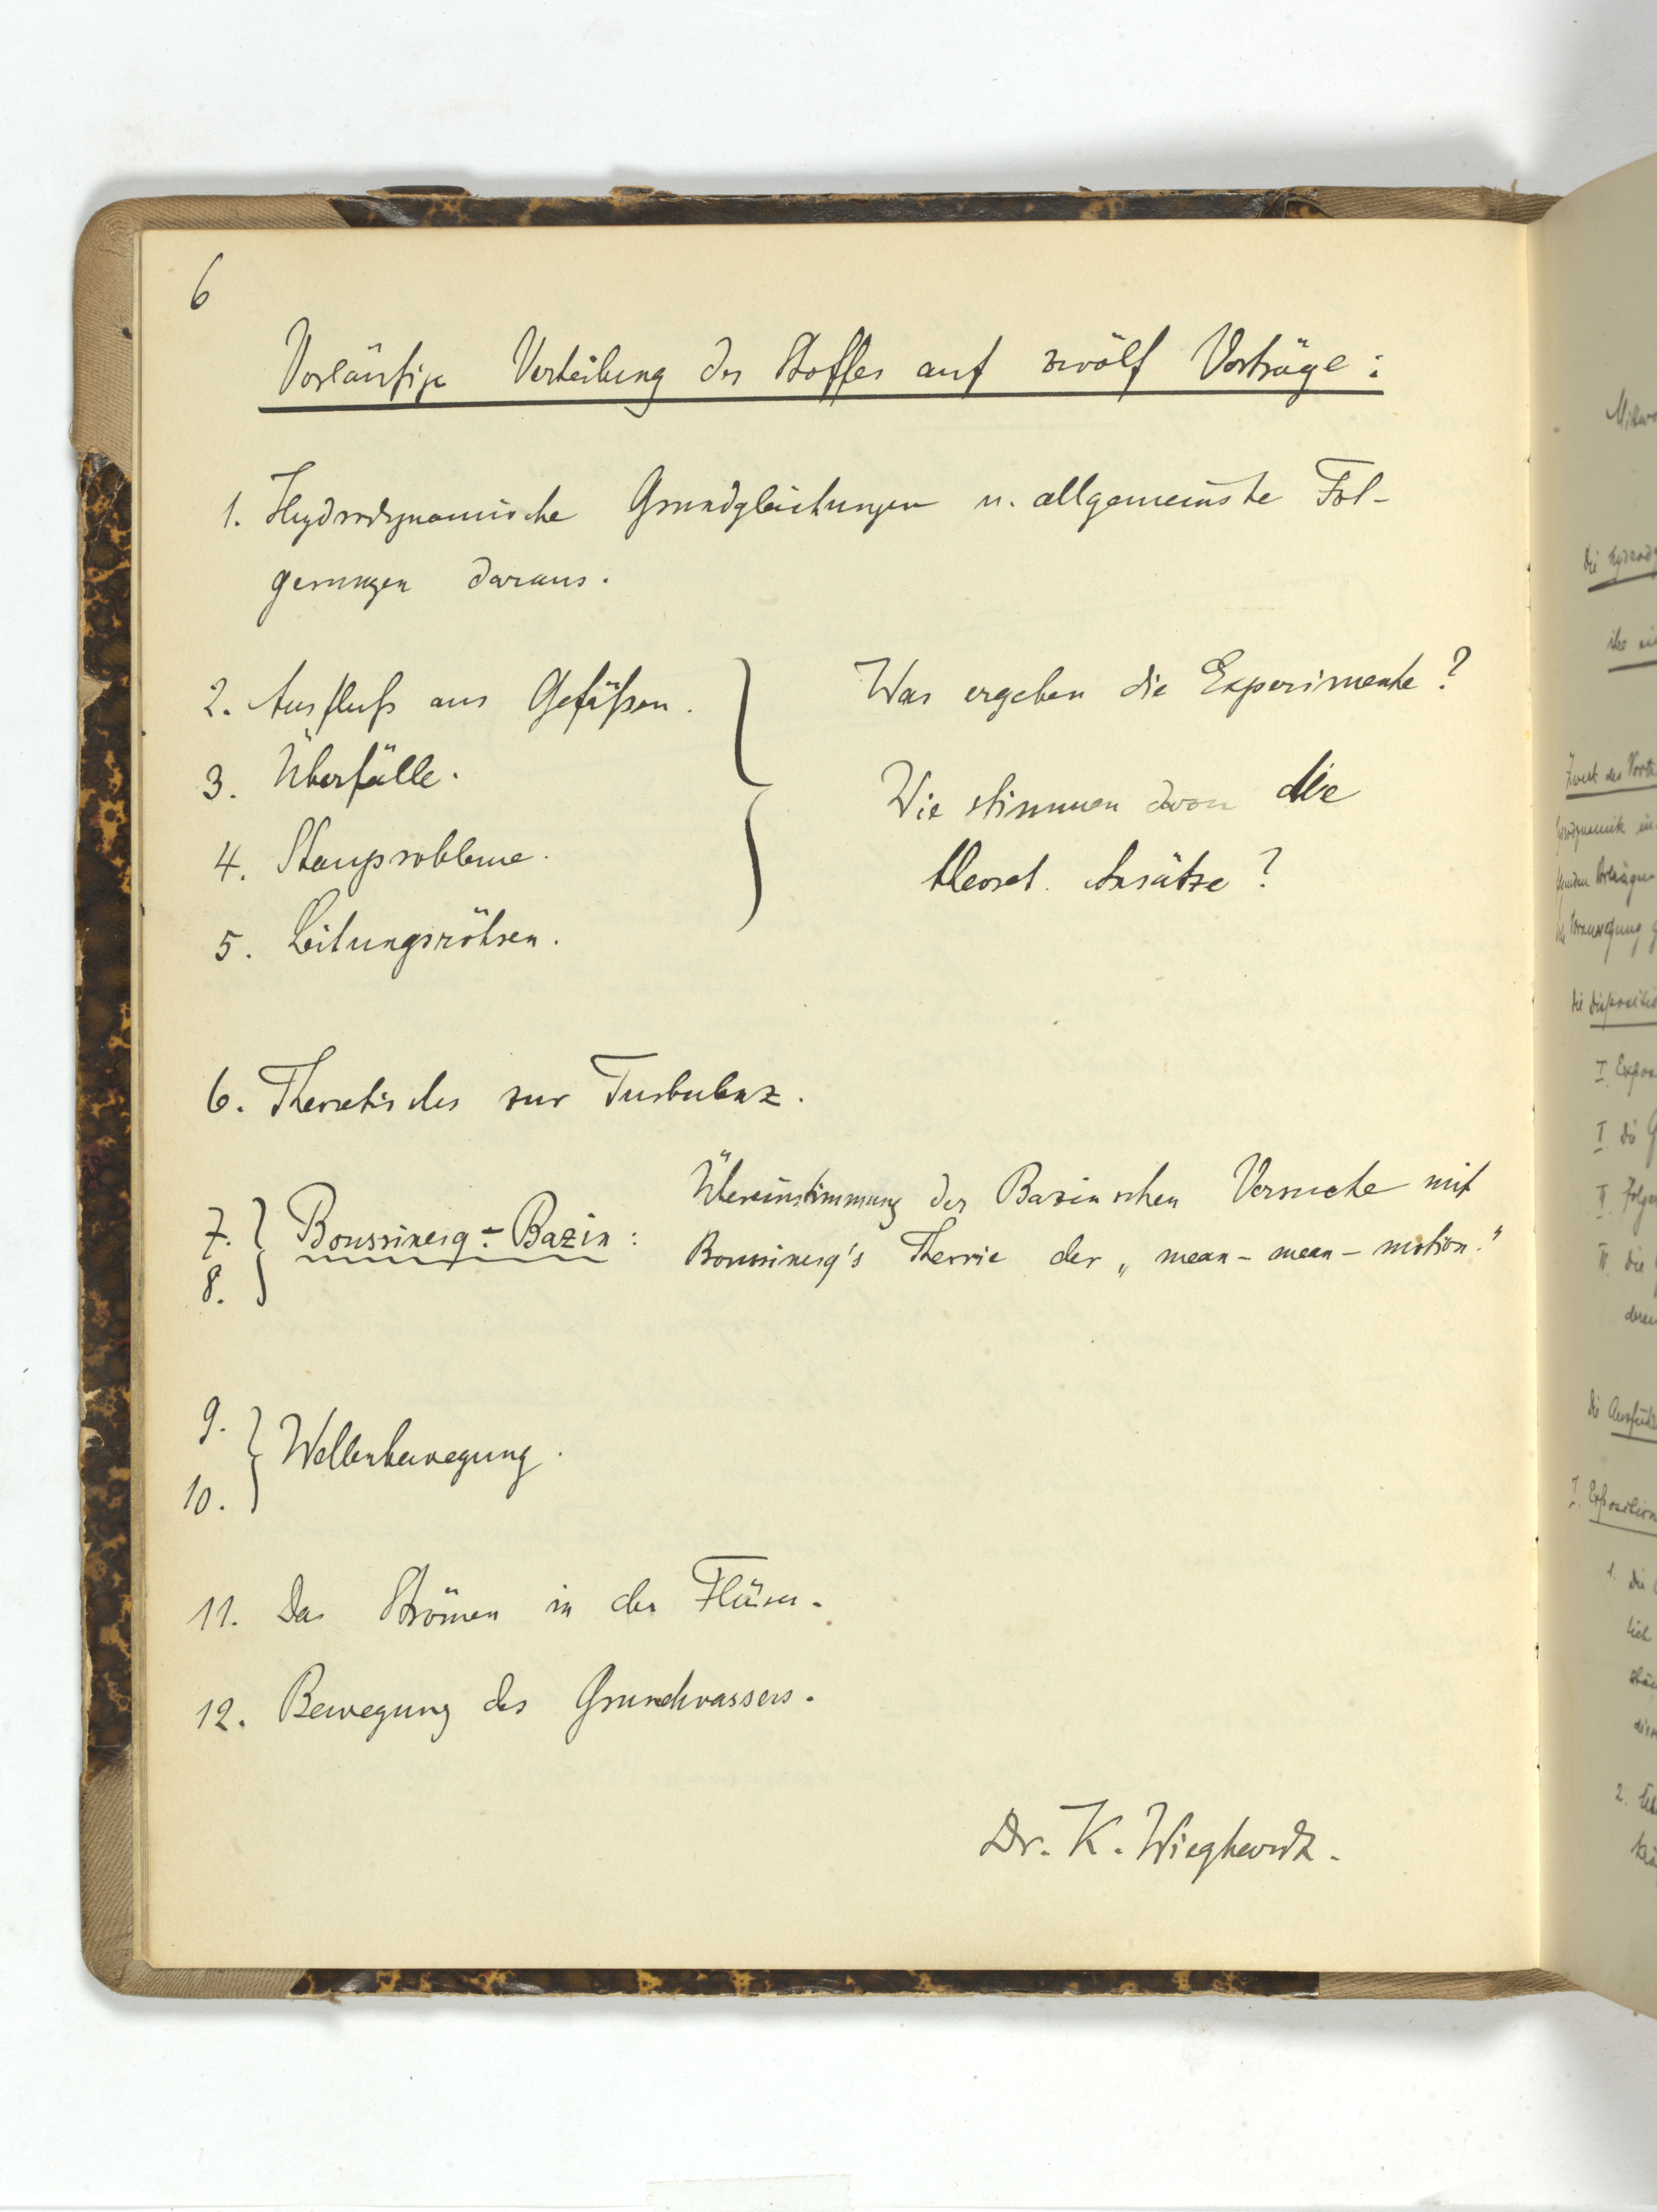 6
Vorläufige Verteilung des Stoffes auf zwölf Vorträge:
1. Hydrodynamische Grundgleichungen u. allgemeinste Fol-
gerungen daraus.
2. Ausfluß aus Gefäßen.
3. Überfälle.
4. Stauprobleme.
5. Leitungsröhren.
Was ergeben die Experimente?
Wie stimmen dazu die
theoret. Ansätze?
6. Theoretisches zur Turbulenz.
7.
8.
Boussinesq-Bazin:
Übereinstimmung der Bazinschen Versuche mit
Boussinesq's Theorie der „mean-mean-motion."
9.
10.
Wellenbewegung.
11. Das Strömen in den Flüssen.
12. Bewegung des Grundwassers.
Dr. K. Wieghardt.
Die
Zweck des
I.
I. Die
II.
III. Die
I. Exposition
1. Die
2.